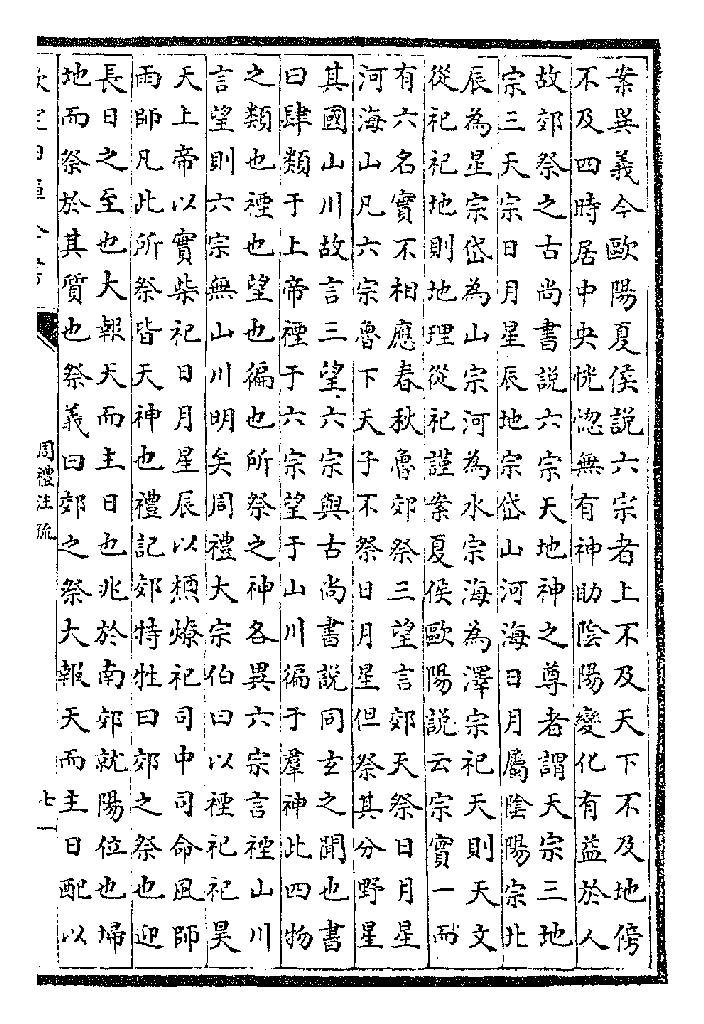 案異義今歐陽夏侯説六宗者上不及天下不及地傍
不及四時居中央恍惚無有神助隂陽變化有益於人
故郊祭之古尚書説六宗天地神之尊者謂天宗三地
宗三天宗日月星辰地宗岱山河海日月屬隂陽宗北
辰為星宗岱為山宗河為水宗海為澤宗祀天則天文
從祀祀地則地理從祀謹案夏侯歐陽説云宗實一而
有六名實不相應春秋魯郊祭三望言郊天祭日月星
河海山凡六宗魯下天子不祭日月星但祭其分野星
其國山川故言三望六宗與古尚書説同玄之聞也書
曰肆類于上帝禋于六宗望于山川徧于羣神此四物
之類也禋也望也徧也所祭之神各異六宗言禋山川
言望則六宗無山川明矣周禮大宗伯曰以禋祀祀昊
天上帝以實柴祀日月星辰以槱燎祀司中司命風師
雨師凡此所祭皆天神也禮記郊特牲曰郊之祭也迎
長日之至也大報天而主日也兆於南郊就陽位也埽
地而祭於其質也祭義曰郊之祭大報天而主日配以
周禮注疏